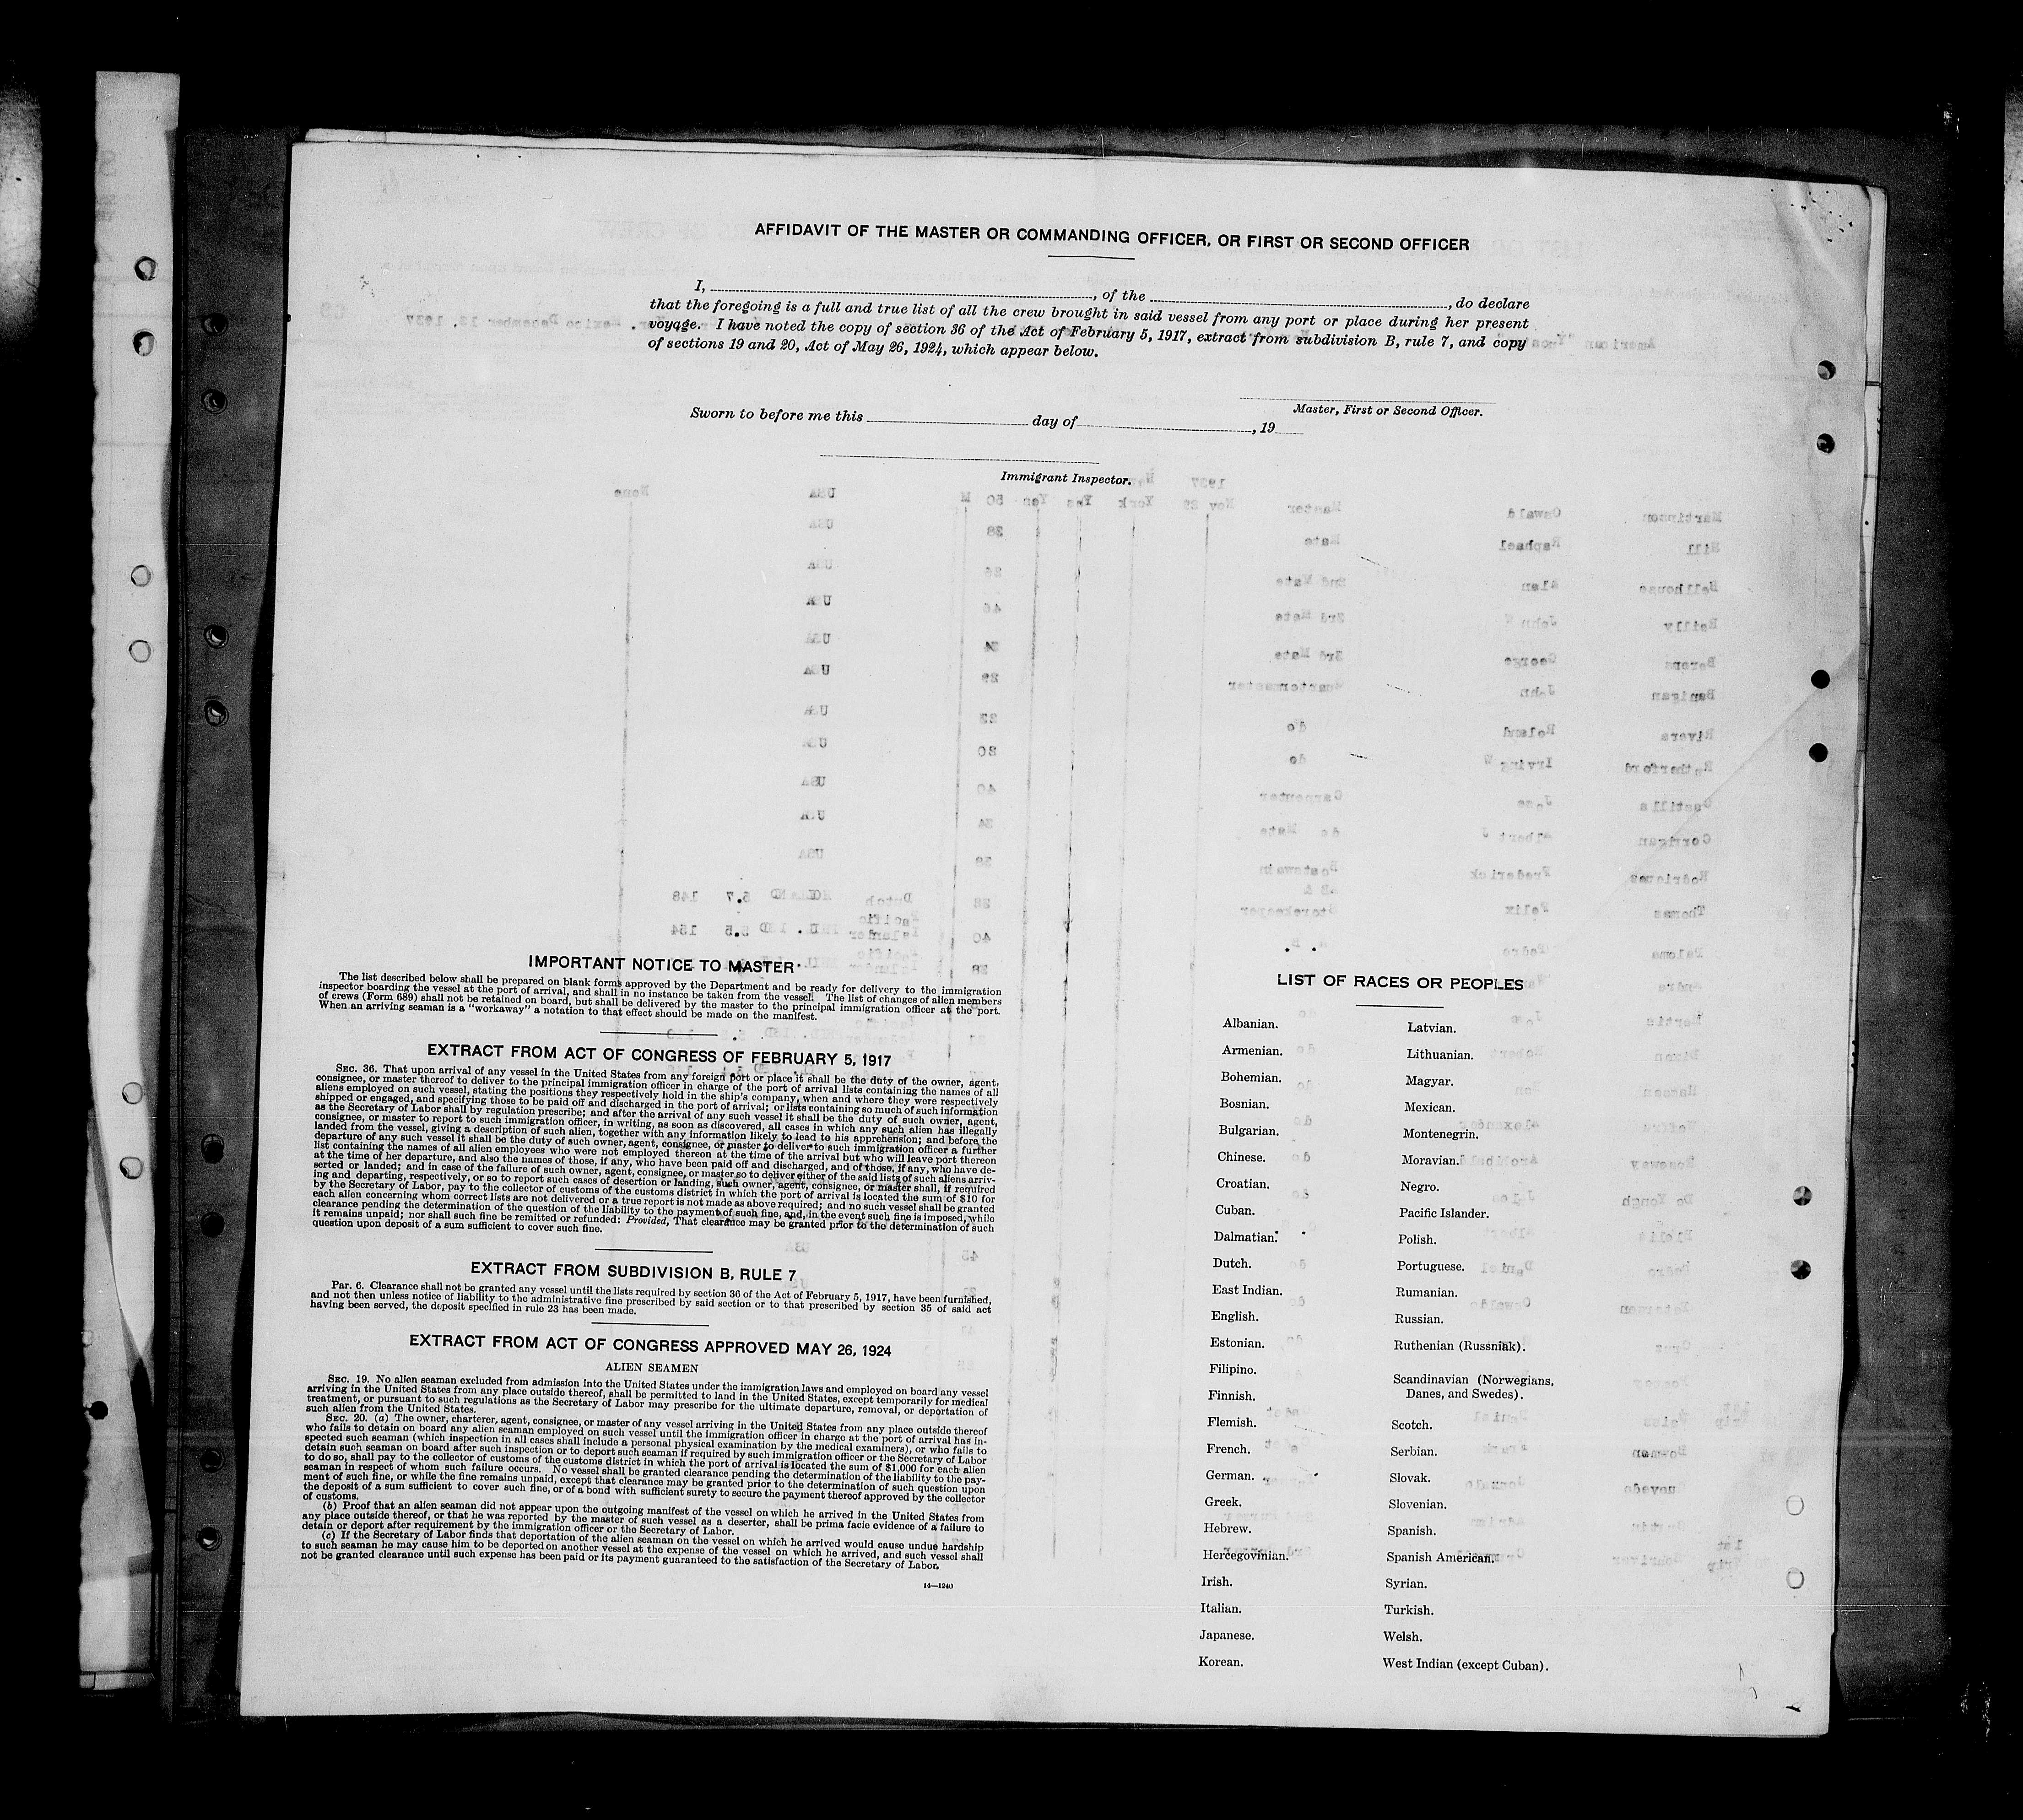 AFFIDAVIT OF THE MASTER OR COMMANDING OFFICER, OR FIRST OR SECOND OFFICER
I, , of the , do declare
that the foregoing is a full and true list of all the crew brought in said vessel from any port or place during her present
voyage. I have noted the copy of section 36 of the Act of February 5, 1917, extract from subdivision B, rule 7, and copy
of sections 19 and 20, Act of May 26, 1924, which appear below.
Master, First or Second Officer.
Sworn to before me this day of , 19
Immigrant Inspector.
IMPORTANT NOTICE TO MASTER
The list described below shall be prepared on blank forms approved by the Department and be ready for delivery to the immigration
inspector boarding the vessel at the port of arrival, and shall in no instance be taken from the vessel. The list of changes of alien members
of crews (Form 689) shall not be retained on board, but shall be delivered by the master to the principal immigration officer at the port.
When an arriving seaman is a "workaway" a notation to that effect should be made on the manifest.
EXTRACT FROM ACT OF CONGRESS OF FEBRUARY 5, 1917
SEC. 36. That upon arrival of any vessel in the United States from any foreign port or place it shall be the duty of the owner, agent,
consignee, or master thereof to deliver to the principal immigration officer in charge of the port of arrival lists containing the names of all
aliens employed on such vessel, stating the positions they respectively hold in the ship's company, when and where they were respectively
shipped or engaged, and specifying those to be paid off and discharged in the port of arrival; or lists containing so much of such information
as the Secretary of Labor shall by regulation prescribe; and after the arrival of any such vessel it shall be the duty of such owner, agent,
consignee, or master to report to such immigration officer, in writing, as soon as discovered, all cases in which any such alien has illegally
landed from the vessel, giving a description of such alien, together with any information likely to lead to his apprehension; and before the
departure of any such vessel it shall be the duty of such owner, agent, consignee, or master to deliver to such immigration officer a further
list containing the names of all alien employees who were not employed thereon at the time of the arrival but who will leave port thereon
at the time of her departure, and also the names of those, if any, who have been paid off and discharged, and of those, if any, who have de-
serted or landed; and in case of the failure of such owner, agent, consignee, or master so to deliver either of the said lists of such aliens arriv-
ing and departing, respectively, or so to report such cases of desertion or landing, such owner, agent, consignee, or master shall, if required
by the Secretary of Labor, pay to the collector of customs of the customs district in which the port of arrival is located the sum of $10 for
each alien concerning whom correct lists are not delivered or a true report is not made as above required; and no such vessel shall be granted
clearance pending the determination of the question of the liability to the payment of such fine, and, in the event such fine is imposed, while
it remains unpaid; nor shall such fine be remitted or refunded: Provided, That clearance may be granted prior to the determination of such
question upon deposit of a sum sufficient to cover such fine.
EXTRACT FROM SUBDIVISION B, RULE 7
Par. 6. Clearance shall not be granted any vessel until the lists required by section 36 of the Act of February 5, 1917, have been furnished,
and not then unless notice of liability to the administrative fine prescribed by said section or to that prescribed by section 35 of said act
having been served, the deposit specified in rule 23 has been made.
EXTRACT FROM ACT OF CONGRESS APPROVED MAY 26, 1924
ALIEN SEAMEN
SEC. 19. No alien seaman excluded from admission into the United States under the immigration laws and employed on board any vessel
arriving in the United States from any place outside thereof, shall be permitted to land in the United States, except temporarily for medical
treatment, or pursuant to such regulations as the Secretary of Labor may prescribe for the ultimate departure, removal, or deportation of
such alien from the United States.
SEC. 20. (a) The owner, charterer, agent, consignee, or master of any vessel arriving in the United States from any place outside thereof
who fails to detain on board any alien seaman employed on such vessel until the immigration officer in charge at the port of arrival has in-
spected such seaman (which inspection in all cases shall include a personal physical examination by the medical examiners), or who fails to
detain such seaman on board after such inspection or to deport such seaman if required by such immigration officer or the Secretary of Labor
to do so, shall pay to the collector of customs of the customs district in which the port of arrival is located the sum of $1,000 for each alien
seaman in respect of whom such failure occurs. No vessel shall be granted clearance pending the determination of the liability to the pay-
ment of such fine, or while the fine remains unpaid, except that clearance may be granted prior to the determination of such question upon
the deposit of a sum sufficient to cover such fine, or of a bond with sufficient surety to secure the payment thereof approved by the collector
of customs.
(b) Proof that an alien seaman did not appear upon the outgoing manifest of the vessel on which he arrived in the United States from
any place outside thereof, or that he was reported by the master of such vessel as a deserter, shall be prima facie evidence of a failure to
detain or deport after requirement by the immigration officer or the Secretary of Labor.
(c) If the Secretary of Labor finds that deportation of the alien seaman on the vessel on which he arrived would cause undue hardship
to such seaman he may cause him to be deported on another vessel at the expense of the vessel on which he arrived, and such vessel shall
not be granted clearance until such expense has been paid or its payment guaranteed to the satisfaction of the Secretary of Labor.
14—1240
LIST OF RACES OR PEOPLES
Albanian.
Armenian.
Bohemian.
Bosnian.
Bulgarian.
Chinese.
Croatian.
Cuban.
Dalmatian.
Dutch.
East Indian.
English.
Estonian.
Filipino.
Finnish.
Flemish.
French.
German.
Greek.
Hebrew.
Hercegovinian.
Irish.
Italian.
Japanese.
Korean.
Latvian.
Lithuanian.
Magyar.
Mexican.
Montenegrin.
Moravian.
Negro.
Pacific Islander.
Polish.
Portuguese.
Rumanian.
Russian.
Ruthenian (Russniak).
Scandinavian (Norwegians,
Danes, and Swedes).
Scotch.
Serbian.
Slovak.
Slovenian.
Spanish.
Spanish American.
Syrian.
Turkish.
Welsh.
West Indian (except Cuban).